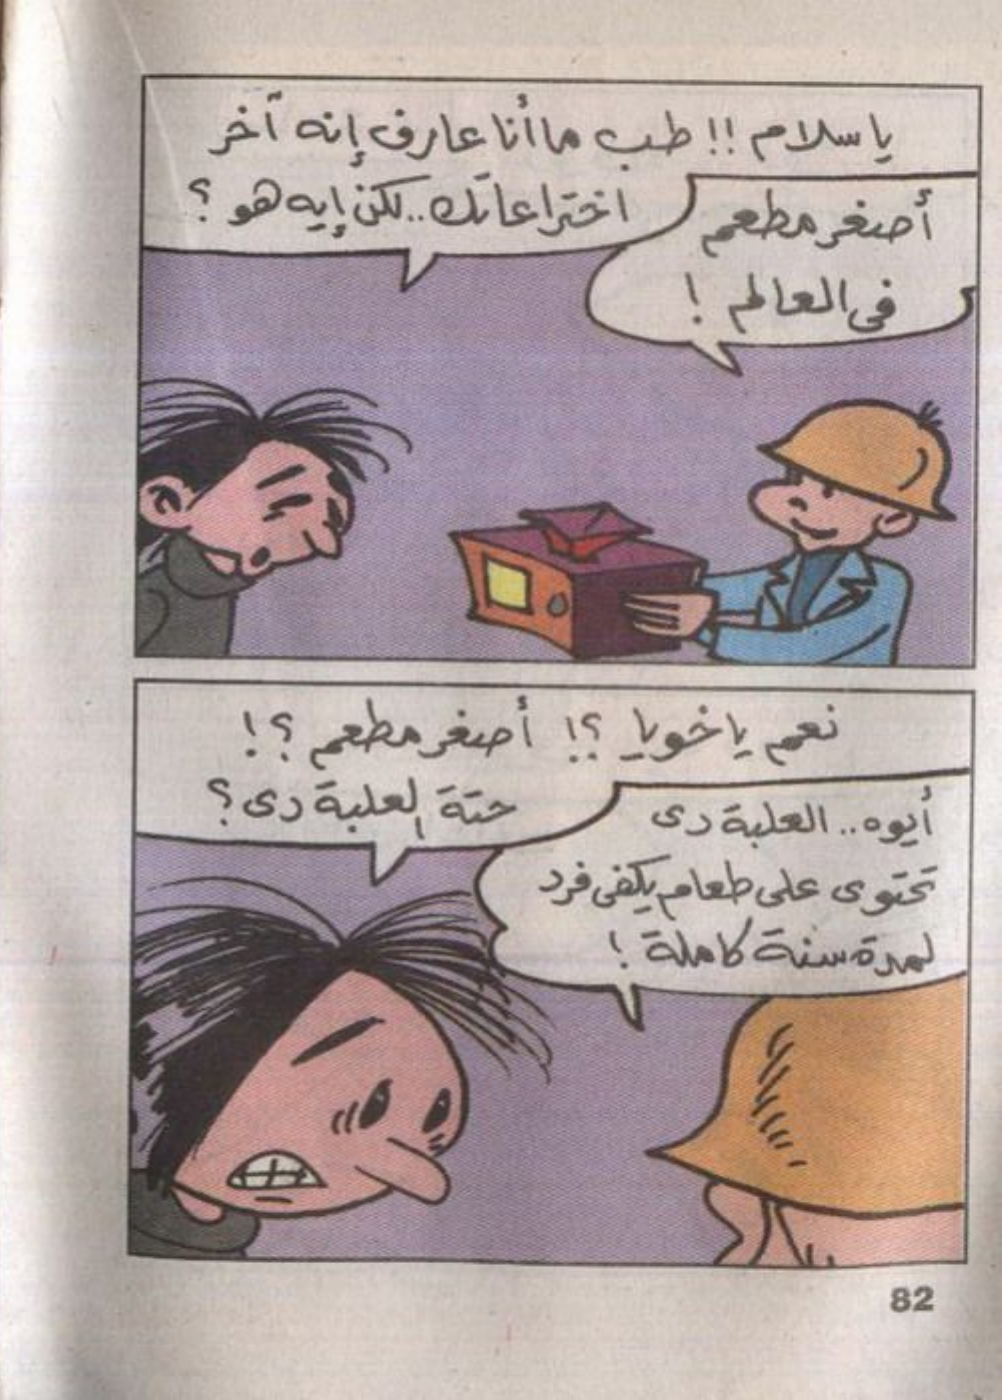 يا سلام !! طب ما أنا عارف إنه آخر
اختراعاتك.. لكن إيه هو ؟
أصغر مطعم
فى العالم !
نعم يا خويا ؟! أصغر مطعم ؟!
حتة لعلبة دى ؟
أيوه.. العلبة دى
تحتوى على طعام يكفى فرد
لمدة سنة كاملة !
82